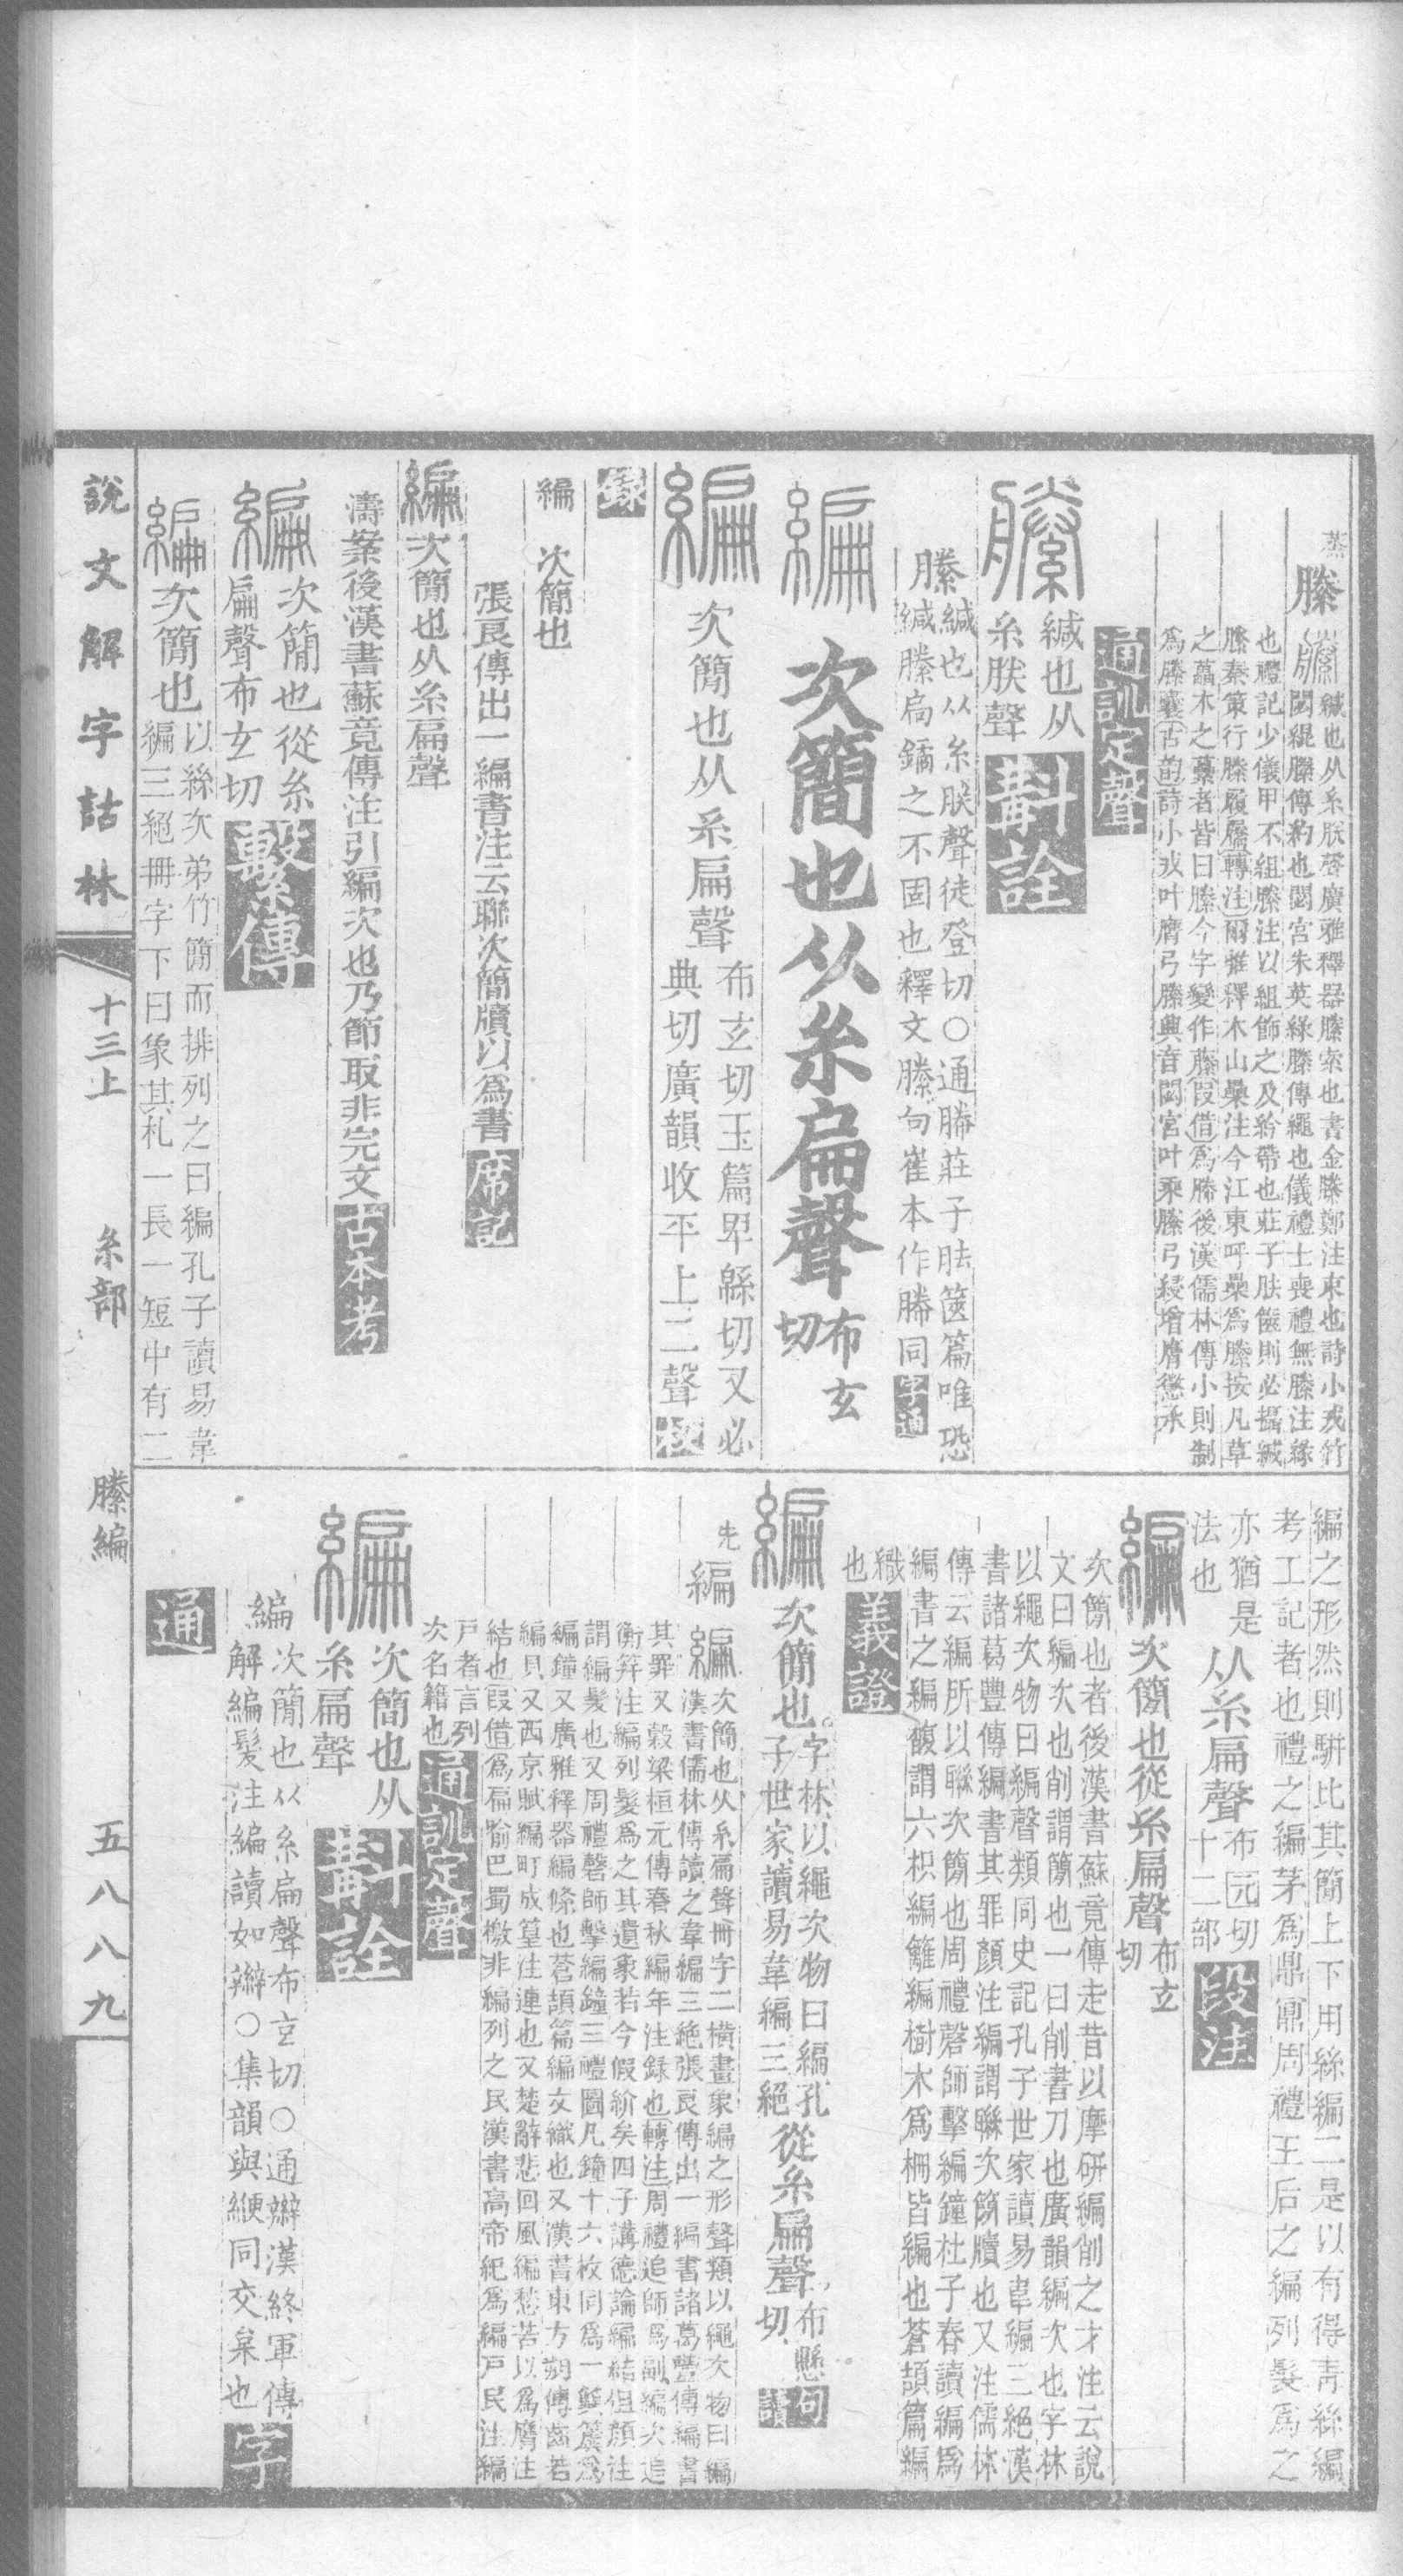 蒸
縢 緘也从糸朕聲廣雅釋器縢索也書金縢鄭注束也詩小戎竹
閟緄縢傳約也閟宮朱英綠縢傳繩也儀禮士喪禮無縢注緣
也禮記少儀甲不組縢注以組飾之及紟帶也莊子胠篋則必攝緘
縢秦策行縢履屩轉注爾雅釋木山櫐注今江東呼櫐爲縢按凡草
之藟木之虆者皆曰縢今字變作藤假借爲幐後漢儒林傳小則制
爲縢囊古韵詩小戎叶膺弓縢興音閟宮叶乘縢弓綅增膺懲承
通訓定聲
縢 緘也从
糸朕聲
斠詮
縢緘也从糸朕聲徒登切○通幐莊子胠篋篇唯恐
緘縢扃鐍之不固也釋文縢句崔本作幐同
字通
編 次簡也从糸扁聲 布玄
切
編 次簡也从糸扁聲 布玄切玉篇卑緜切又必
典切廣韻收平上二聲
校
錄
編 次簡也
張良傳出一編書注云聯次簡牘以爲書 席記
編 次簡也从糸扁聲
濤案後漢書蘇竟傳注引編次也乃節取非完文 古本考
編 次簡也從糸
扁聲布玄切
繫傳
編 次簡也 以絲次弟竹簡而排列之曰編孔子讀易韋
編三絕冊字下曰象其札一長一短中有二
編之形然則駢比其簡上下用絲編二是以有得青絲編
考工記者也禮之編茅爲鼎鼏周禮王后之編列髮爲之
亦猶是
法也
从糸扁聲 布玄切
十二部
段注
編 次簡也從糸扁聲 布玄
切
次簡也者後漢書蘇竟傳走昔以摩研編削之才注云說
文曰編次也削謂簡也一曰削書刀也廣韻編次也字林
以繩次物曰編聲類同史記孔子世家讀易韋編三絕漢
書諸葛豐傳編書其罪顏注編謂聯次簡牘也又注儒林
傳云編所以聯次簡也周禮磬師擊編鐘杜子春讀編爲
編書之編馥謂六枳編籬編樹木爲柵皆編也蒼頡篇編
織
也
義證
編 次簡也 字林以繩次物曰編孔
子世家讀易韋編三絕
從糸扁聲 布懸
切
句
讀
先
編 編 次簡也从糸扁聲冊字二橫畫象編之形聲類以繩次物曰編
漢書儒林傳讀之韋編三絕張良傳出一編書諸葛豐傳編書
其罪又穀梁桓元傳春秋編年注錄也轉注周禮追師爲副編次追
衡笄注編列髮爲之其遺象若今假紒矣四子講德論編結但顏注
謂編髮也又周禮磬師擊編鐘三禮圖凡鐘十六枚同爲一簨簴爲
編鐘又廣雅釋器編絛也蒼頡篇編交織也又漢書東方朔傳齒若
編貝又西京賦編町成篁注連也又楚辭悲回風編愁苦以爲膺注
結也假借爲扁喻巴蜀檄非編列之民漢書高帝紀爲編戶民注編
戶者言列
次名籍也
通訓定聲
編 次簡也从
糸扁聲
斠詮
編 次簡也从糸扁聲布玄切○通辮漢終軍傳
解編髮注編讀如辮○集韻與緶同交枲也
字
通
說文解字詁林
十三上
糸部
縢編
五八八九